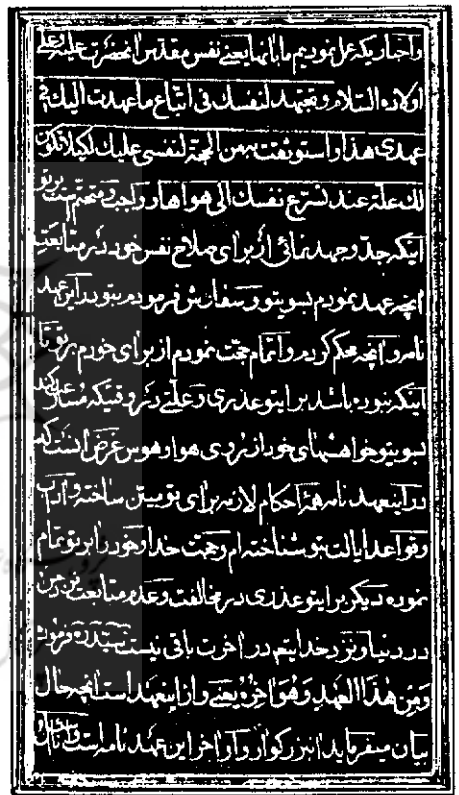 و اخباریکه عمل نمودیم ما بانها یعنی نفس مقدس انحضرت علیه و علی
اولاده السلام و تجتهد لنفسك فی اتباع ما عهدت الیك فی
عهدی هذا و استوثقت به من الحجة لنفسی علیك لکیلا تکون
لك علة عند تسرع نفسك الی هواها و واجب و متحتم است بر تو
اینکه جد و جهد نمائی از برای صلاح نفس خود در متابعت
انچه عهد نمودم بسوی تو و سفارش فرمودم بتو در این عهد
نامه و آنچه محکم کردم و اتمام حجت نمودم از برای خودم بر تو تا
اینکه نبوده باشد برایتو عذری و علتی در وقتیکه
بسویتو خواهشهای خود از روی هوا و هوس غرض انست که
در اینعهد نامه همه احکام لازمه برای تو مبین ساخته و آداب
و قواعد ایالت بتو شناخته ام و حجت خدا و خود را بر تو تمام
نموده دیگر برایتو عذری در مخالفت و عدم متابعت من
در دنیا و نزد خدا یتم در اخرت باقی نیست
وَمِن هٰذَا العَهدِ وَهُوَ اخِرُهُ یعنی و از اینعهد است انچه حال
بیان میفرماید انبزرکوار و آن اخر این عهد نامه است